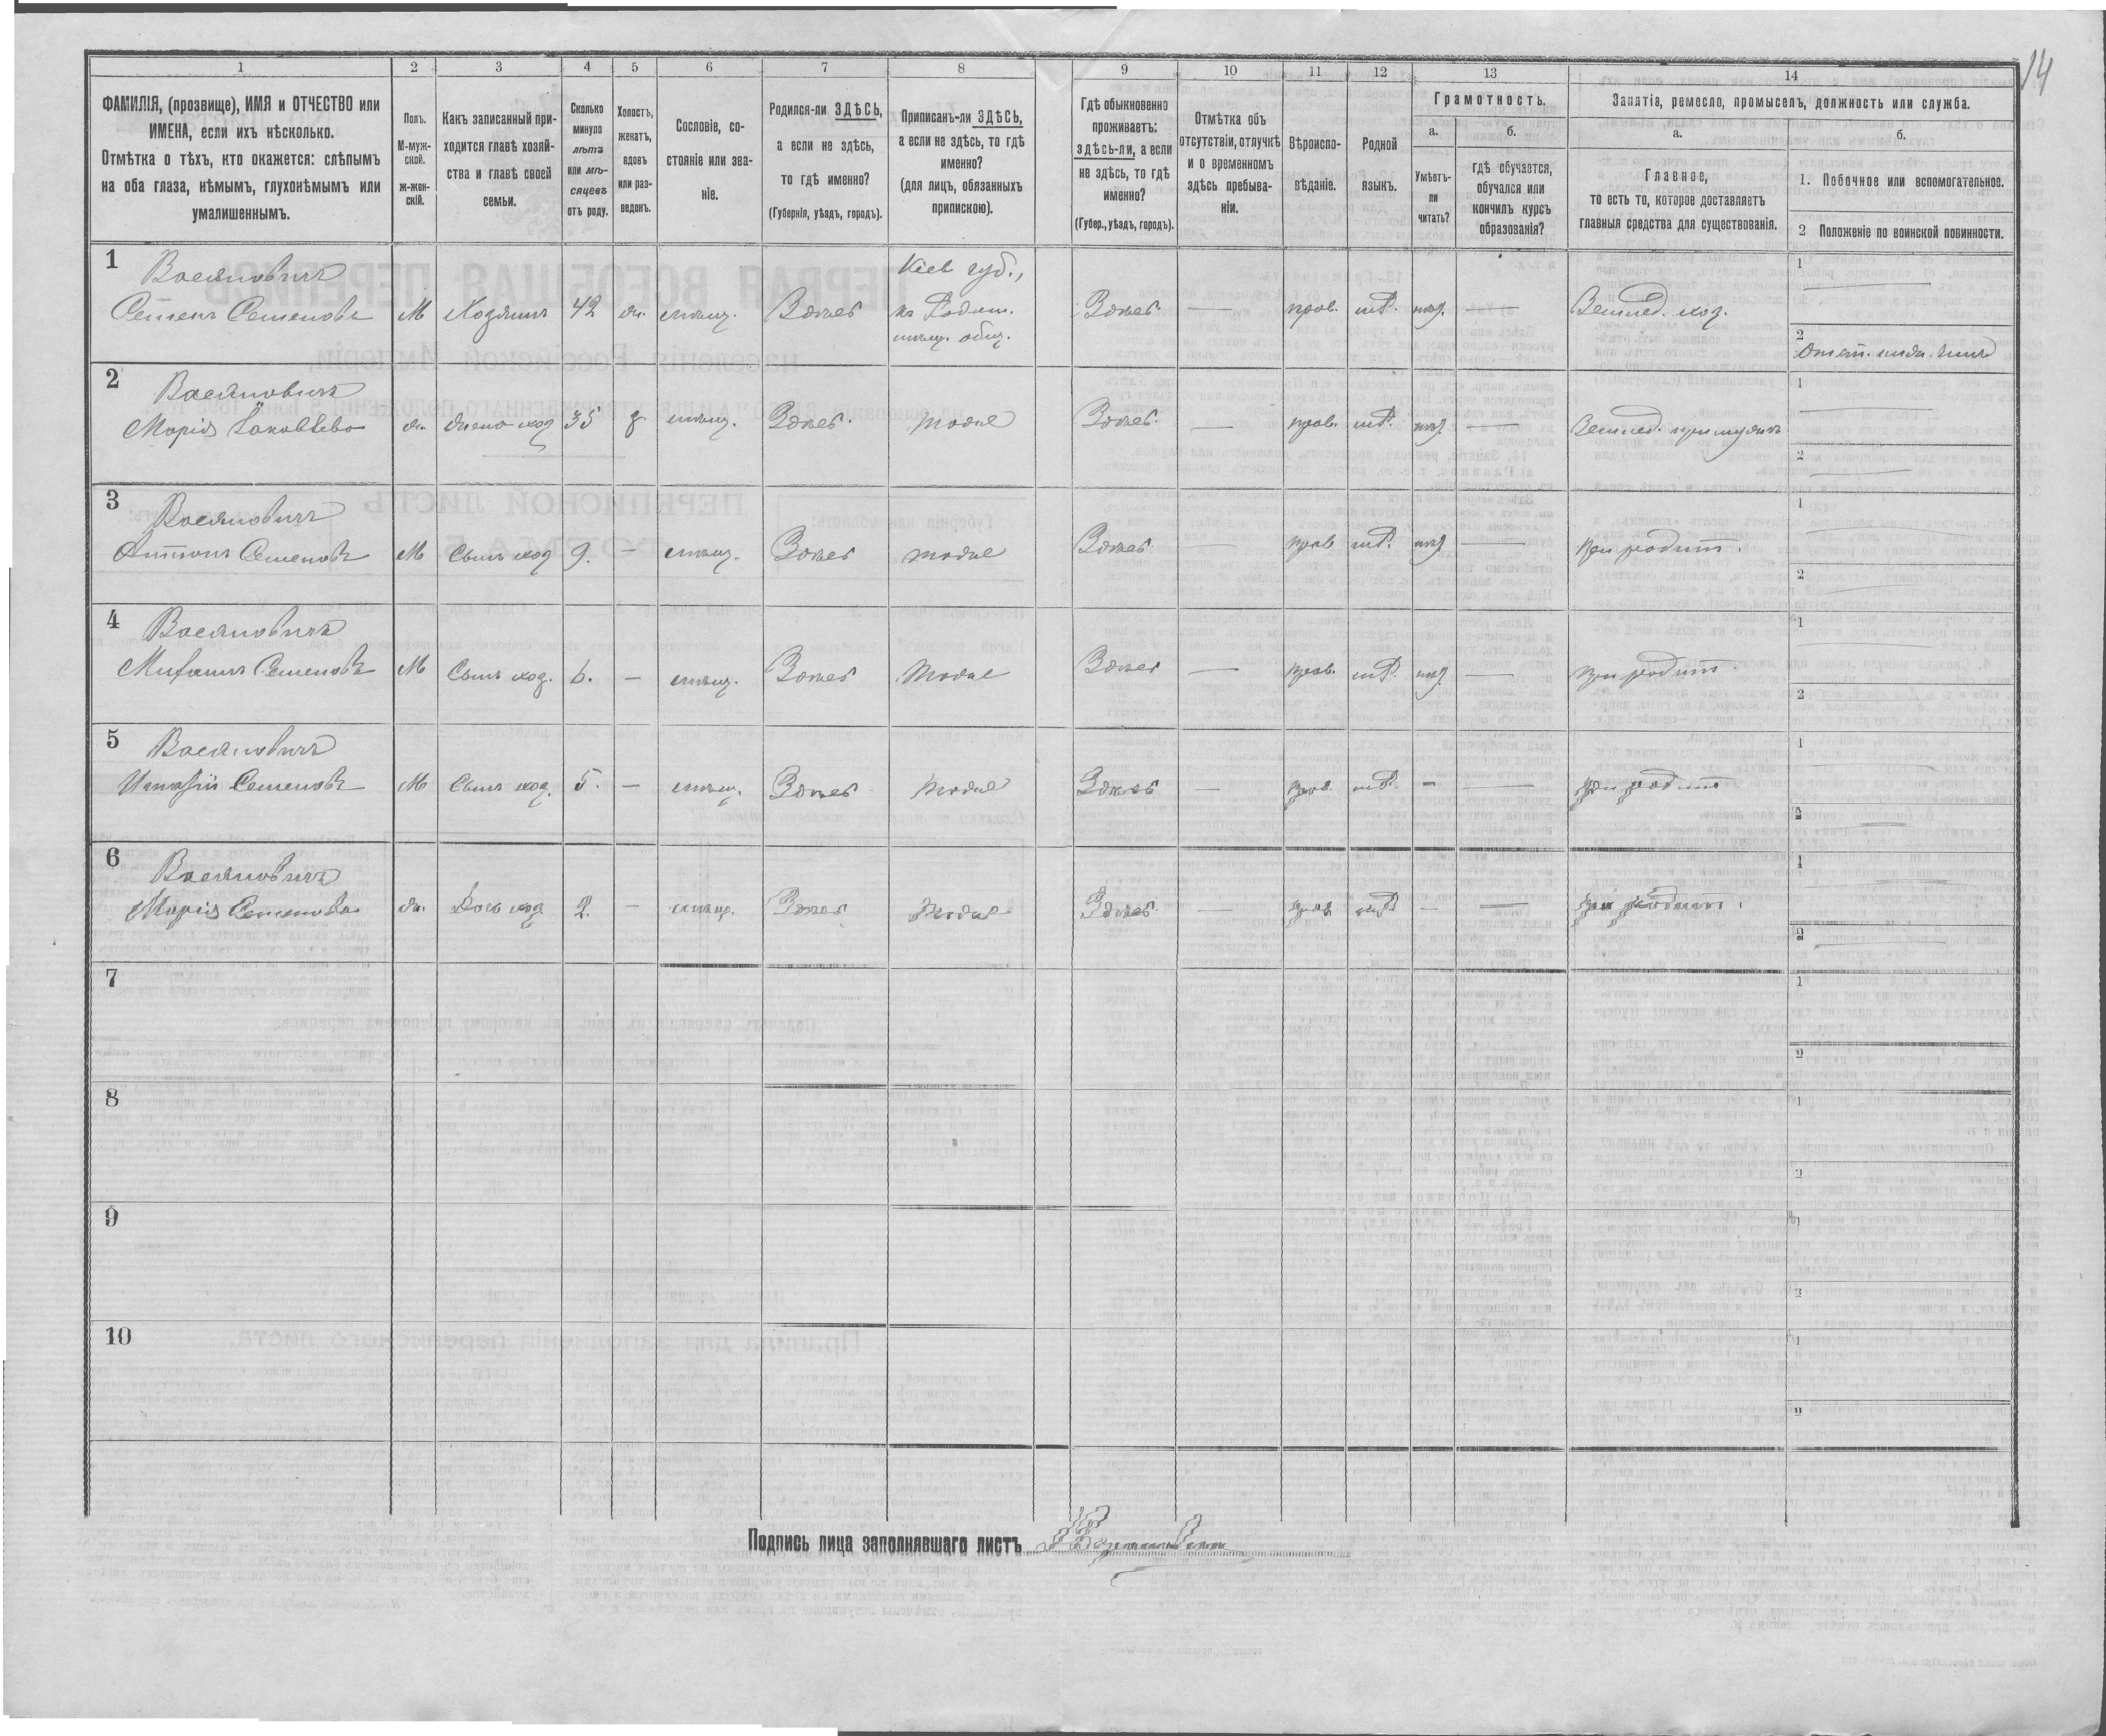 14
1 2 3 4 5 6 7 8 9 10 11 12 13 14
ФАМИЛІЯ, (прозвище), ИМЯ и ОТЧЕСТВО или
ИМЕНА, если ихъ нѣсколько.
Отмѣтка о тѣхъ, кто окажется: слѣпымъ
на оба глаза, нѣмымъ, глухонѣмымъ или
умалишеннымъ.
Полъ.
М-муж-
ской.
ж-жен-
скій.
Какъ записанный при-
ходится главѣ хозяй-
ства и главѣ своей
семьи.
Сколько
минуло
лѣтъ
или мѣ-
сяцевъ
отъ роду.
Холостъ,
женатъ,
вдовъ
или раз-
веденъ.
Сословіе, со-
стояніе или зва-
ніе.
Родился-ли ЗДѢСЬ,
а если не здѣсь,
то гдѣ именно?
(Губернія, уѣздъ, городъ).
Приписанъ-ли ЗДѢСЬ,
а если не здѣсь, то гдѣ
именно?
(для лицъ, обязанныхъ
припискою).
Гдѣ обыкновенно
проживаетъ:
здѣсь-ли, а если
не здѣсь, то гдѣ
именно?
(Губер., уѣздъ, городъ).
Отмѣтка объ
отсутствіи, отлучкѣ
и о временномъ
здѣсь пребыва-
ніи.
Вѣроиспо-
вѣданіе.
Родной
языкъ.
Грамотность.
а.
Умѣетъ-
ли
читать?
б.
гдѣ обучается,
обучался или
кончилъ курсъ
образованія?
Занятіе, ремесло, промыселъ, должность или служба.
а.
Главное,
то есть то, которое доставляетъ
главныя средства для существованія.
б.
1. Побочное или вспомогательное.
2 Положеніе по воинской повинности.
1
Васяновичъ
Семенъ Семеновъ М Хозяинъ 42 ж. мѣщ. Здѣсь
Кіев губ.,
мѣщ. общ.
Здѣсь — прав. — Землед. хоз.
1
2
2
Васяновичъ
Марія Яковлева ж. жена хоз 35 з мѣщ. Здѣсь. тоже Здѣсь. — прав. — Землед. при мужѣ
1
2
3
Васяновичъ
Антонъ Семеновъ М Сынъ хоз 9. — мѣщ. Здѣсь тоже Здѣсь — прав — при родит.
1
2
4
Васяновичъ
Семеновъ М Сынъ хоз. 6. — мѣщ. Здѣсь тоже Здѣсь — прав. — при родит.
1
2
5
Васяновичъ
Семеновъ М Сынъ хоз. 5. — мѣщ. Здѣсь тоже Здѣсь — прав. — — при родит
1
2
6
Васяновичъ
Марія Семенова ж. Дочь хоз 2. — мѣщ. Здѣсь тоже Здѣсь — прав — — при родит.
1
2
7
1
2
8
1
2
9
1
2
10
1
2
Подпись лица заполнявшаго листъ